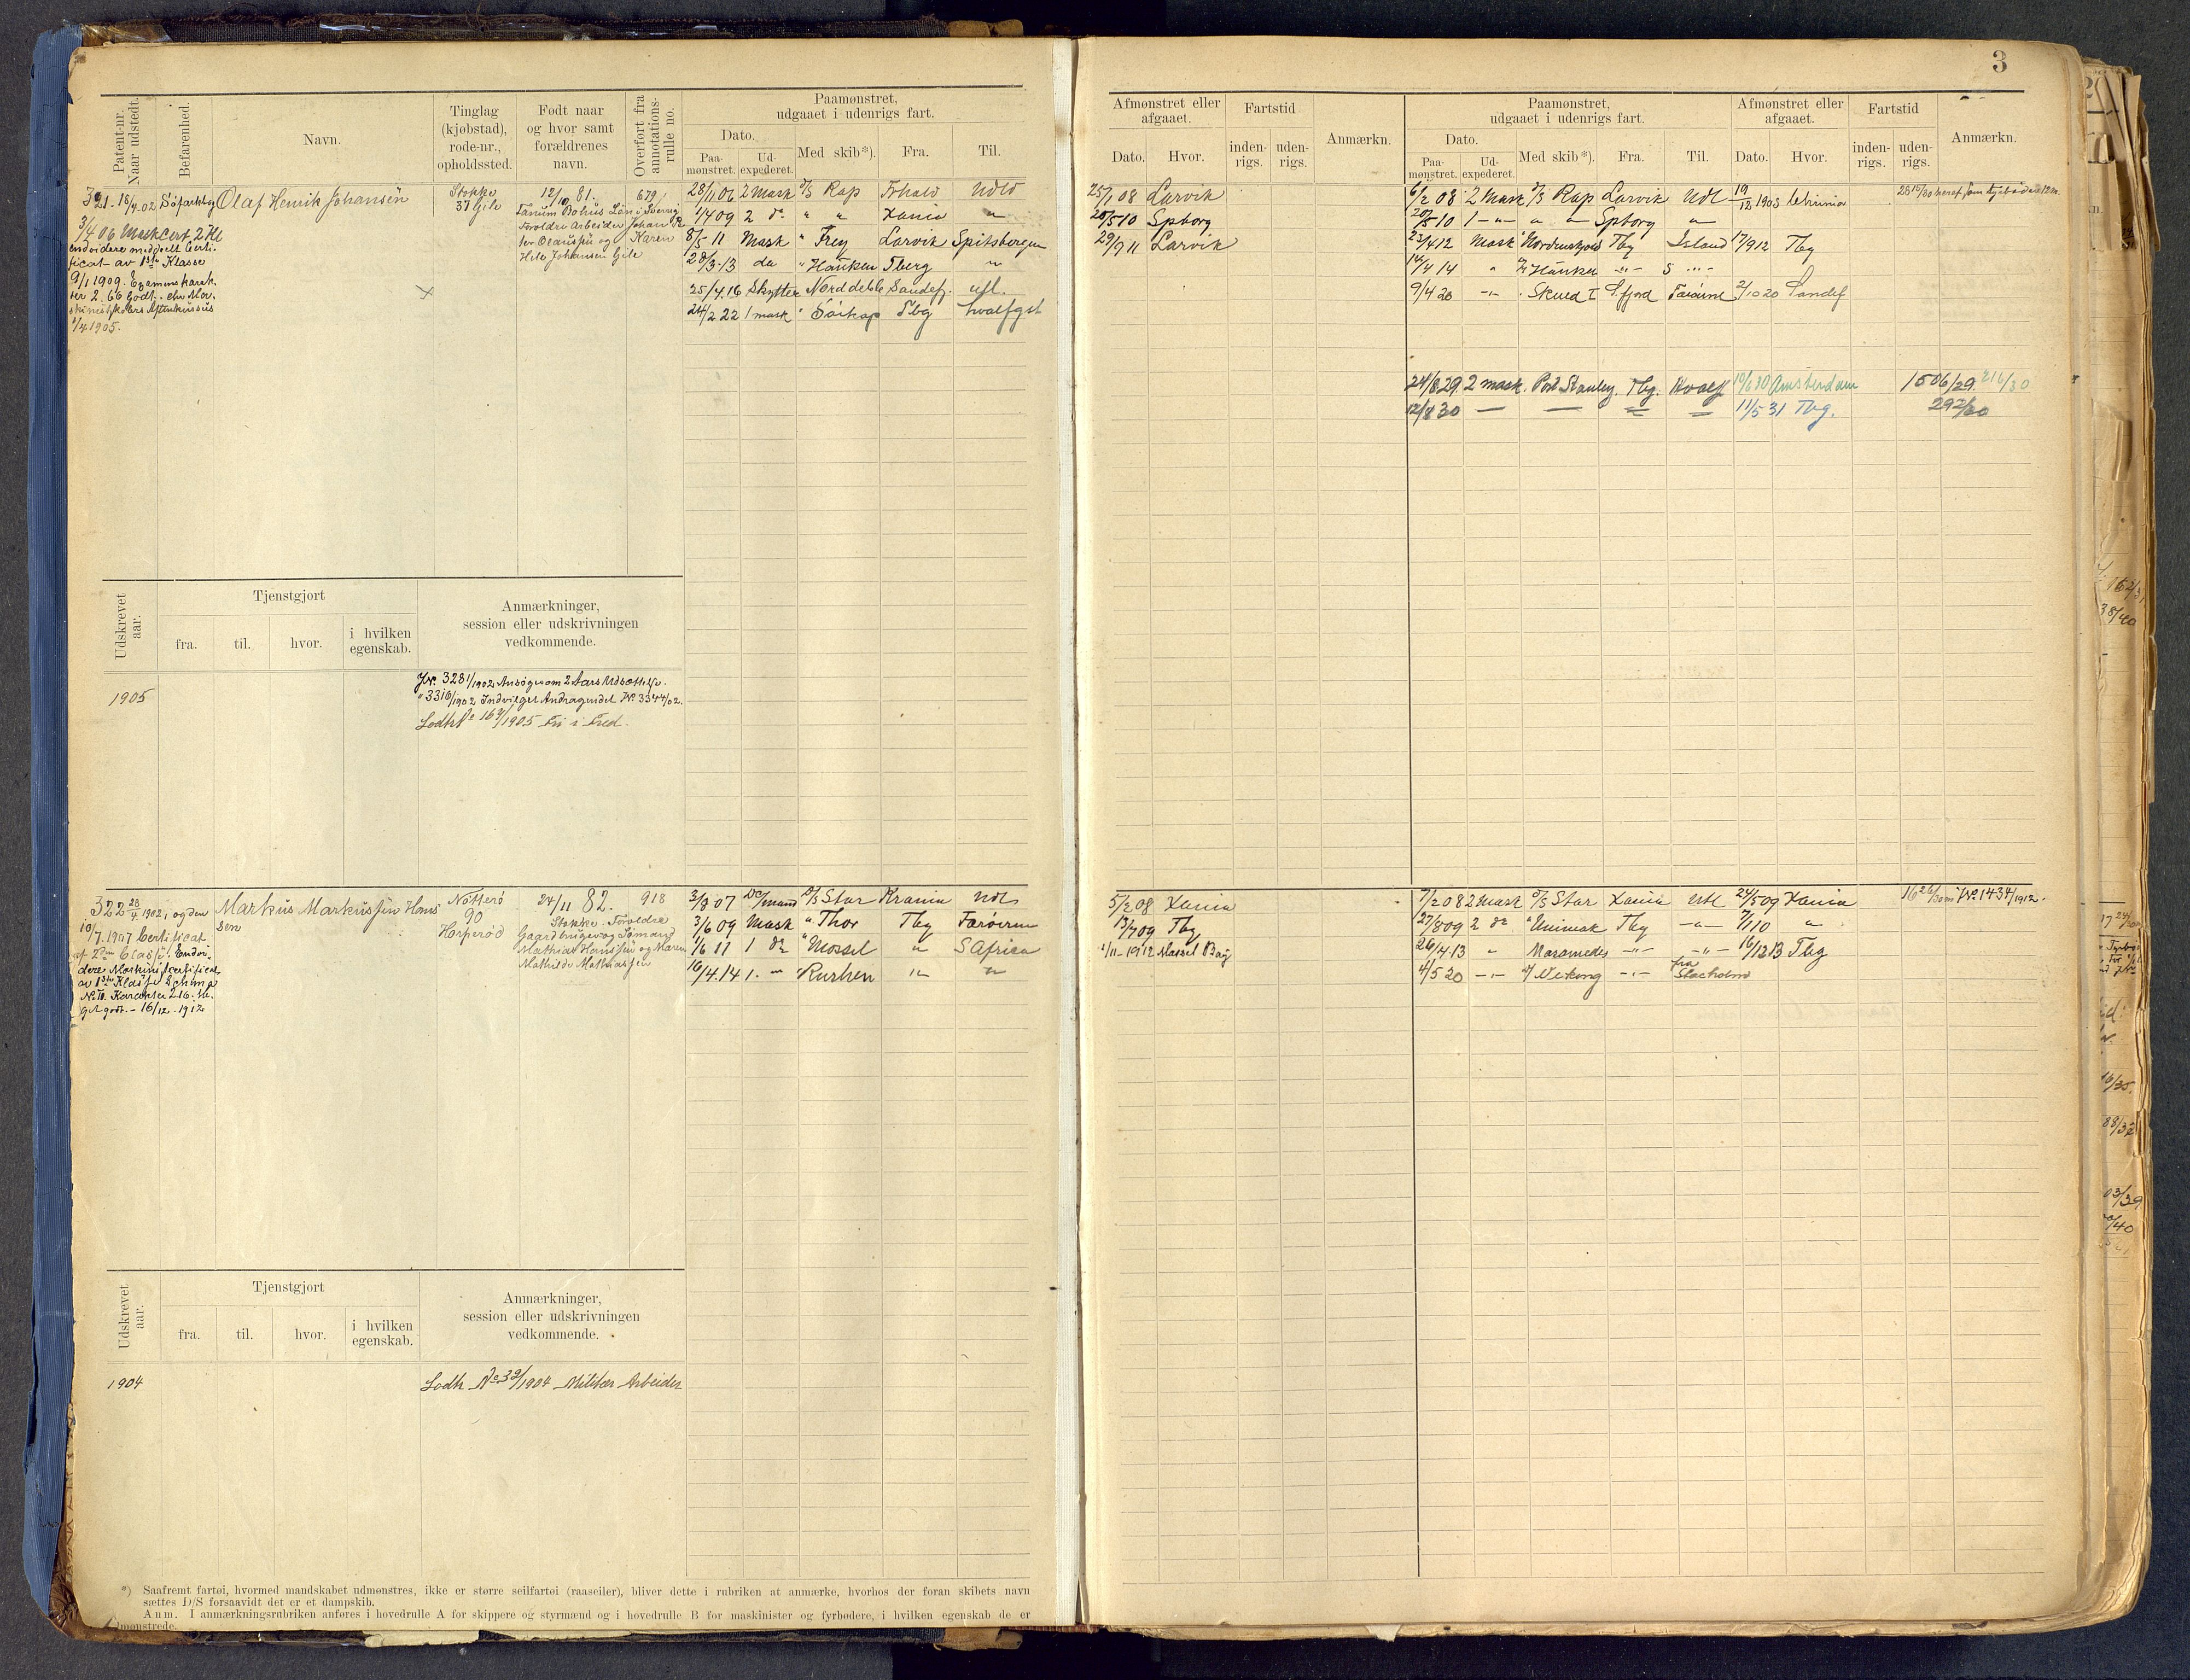 3
Patent-nr. Naar udstedt.
Befarenhed.
Navn.
Tinglag (kjøbstad), rode-nr., opholdssted.
Født naar og hvor samt forældrenes navn.
Overført fra annotationsrulle no.
Paamønstret, udgaaet i udenrigs fart.
Dato.
Paamønstret.
Udexpederet.
Med skib*).
Fra.
Til.
Afmønstret eller afgaaet.
Dato.
Hvor.
Fartstid
indenrigs.
udenrigs.
Anmærkn.
Paamønstret, udgaaet i udenrigs fart.
Dato.
Paamønstret.
Udexpederet.
Med skib*).
Fra.
Til.
Afmønstret eller afgaaet.
Dato.
Hvor.
Fartstid
indenrigs.
udenrigs.
Anmærkn.
321 - 18/9 02
Olaf Henrik Johansen
Stokke
37 Gile
12/10 81.
679
Tanum Bohus Län i Sverrig
Forældre Arbeider Johan
Olaussen og Karen
Johansen Gile
3/4 06 Mask Cert. 2 Kl
endvidere meddelt Certi-
ficat av 1ste Klasse
9/1 1909. Examenskarak-
ter 2.66 Godt.
1/4 1905.
28/11 06 2 Mask D/S Rap Frhald Udld
1/4 09 2 do " " Xania "
8/5 11 Mask " Frey Larvik Spitsbergen
28/3-13 do " Hauken Tberg "
25/4.16 Skytter Norddeble Sandefj. utl.
24/2 22 1 mask " Sörkap Tbg hvalfgst
25/1 08 Larvik
20/5 10 Spborg
29/9 11 Larvik
6/2 08 2 Mask D/S Rap Larvik Udl 19/12 1908
20/5 10 1 - " - " " Spborg "
23/4 12 Mask " Nordenskjold Tbg Island 17/9 12 Tbg
14/4 14 " Hauken - " - S - " -
9/4 20 - " - Skued I S.fjord Færörne 2/10 20 Sandef
24/8 29. 2 mask. Port Stanley. Tbg. Hvalf 10/6 30 Amsterdam 1506/29. 216/30
12/8 30 — — = = 11/5 31 Tbg. 292/30
Udskrevet aar.
Tjenstgjort
fra.
til.
hvor.
i hvilken egenskab.
Anmærkninger, session eller udskrivningen vedkommende.
1905
Jr. 3281/1902 Ansöger om 2 Aars Udsættelse.
" 3316/1902 Indvilget Andragendet Jr. 3344/02.
Lodtr No 169/1905 Fri i Fred.
322 28/4 1902, og den
Markus Markussen Hans
sen
Nötterö
90
Horperød
24/11 82.
918
Stokke. Forældre
Gaardbruger og Sömand
Mathias Hanssen og Maren
Mathilde Mathiassen
10/7. 1907 Certificat
af 2den Classe. Endvi-
dere Maskinistcertificat
av 1ste Klasse Schma
No II. Karakter 2.16. Me-
get godt. - 16/12 - 1912
3/8 07 D/S Star Krania Udl
3/6 09 Mask " Thor Tbg Færöerne
1/6 11 1 do " Mossel " S Africa
16/4.14 1. - " Rushen " "
5/2 08 Xania
13/7 09 Tbg
1/11 - 1912 Mossel Bay
7/2 08 2 Mask D/S Star Xania Utl 24/5 09 Xania
27/8 09 2 do " Unimak Tbg - " - 7/1 10 "
26/4 13 " Mosamedes - " - - " - 16/12 13 Tbg
4/5 20 - " - Viking - " - fra Stocholm
Jr. 1434/1912.
Udskrevet aar.
Tjenstgjort
fra.
til.
hvor.
i hvilken egenskab.
Anmærkninger, session eller udskrivningen vedkommende.
1904
Lodtr No 39/1904 Militær Arbeider
*) Saafremt fartøi, hvormed mandskabet udmønstres, ikke er større seilfartøi (raaseiler), bliver dette i rubriken at anmærke, hvorhos der foran skibets navn
sættes D/S forsaavidt det er et dampskib.
Anm. I anmærkningsrubriken anføres i hovedrulle A for skippere og styrmænd og i hovedrulle B for maskinister og fyrbødere, i hvilken egenskab de er